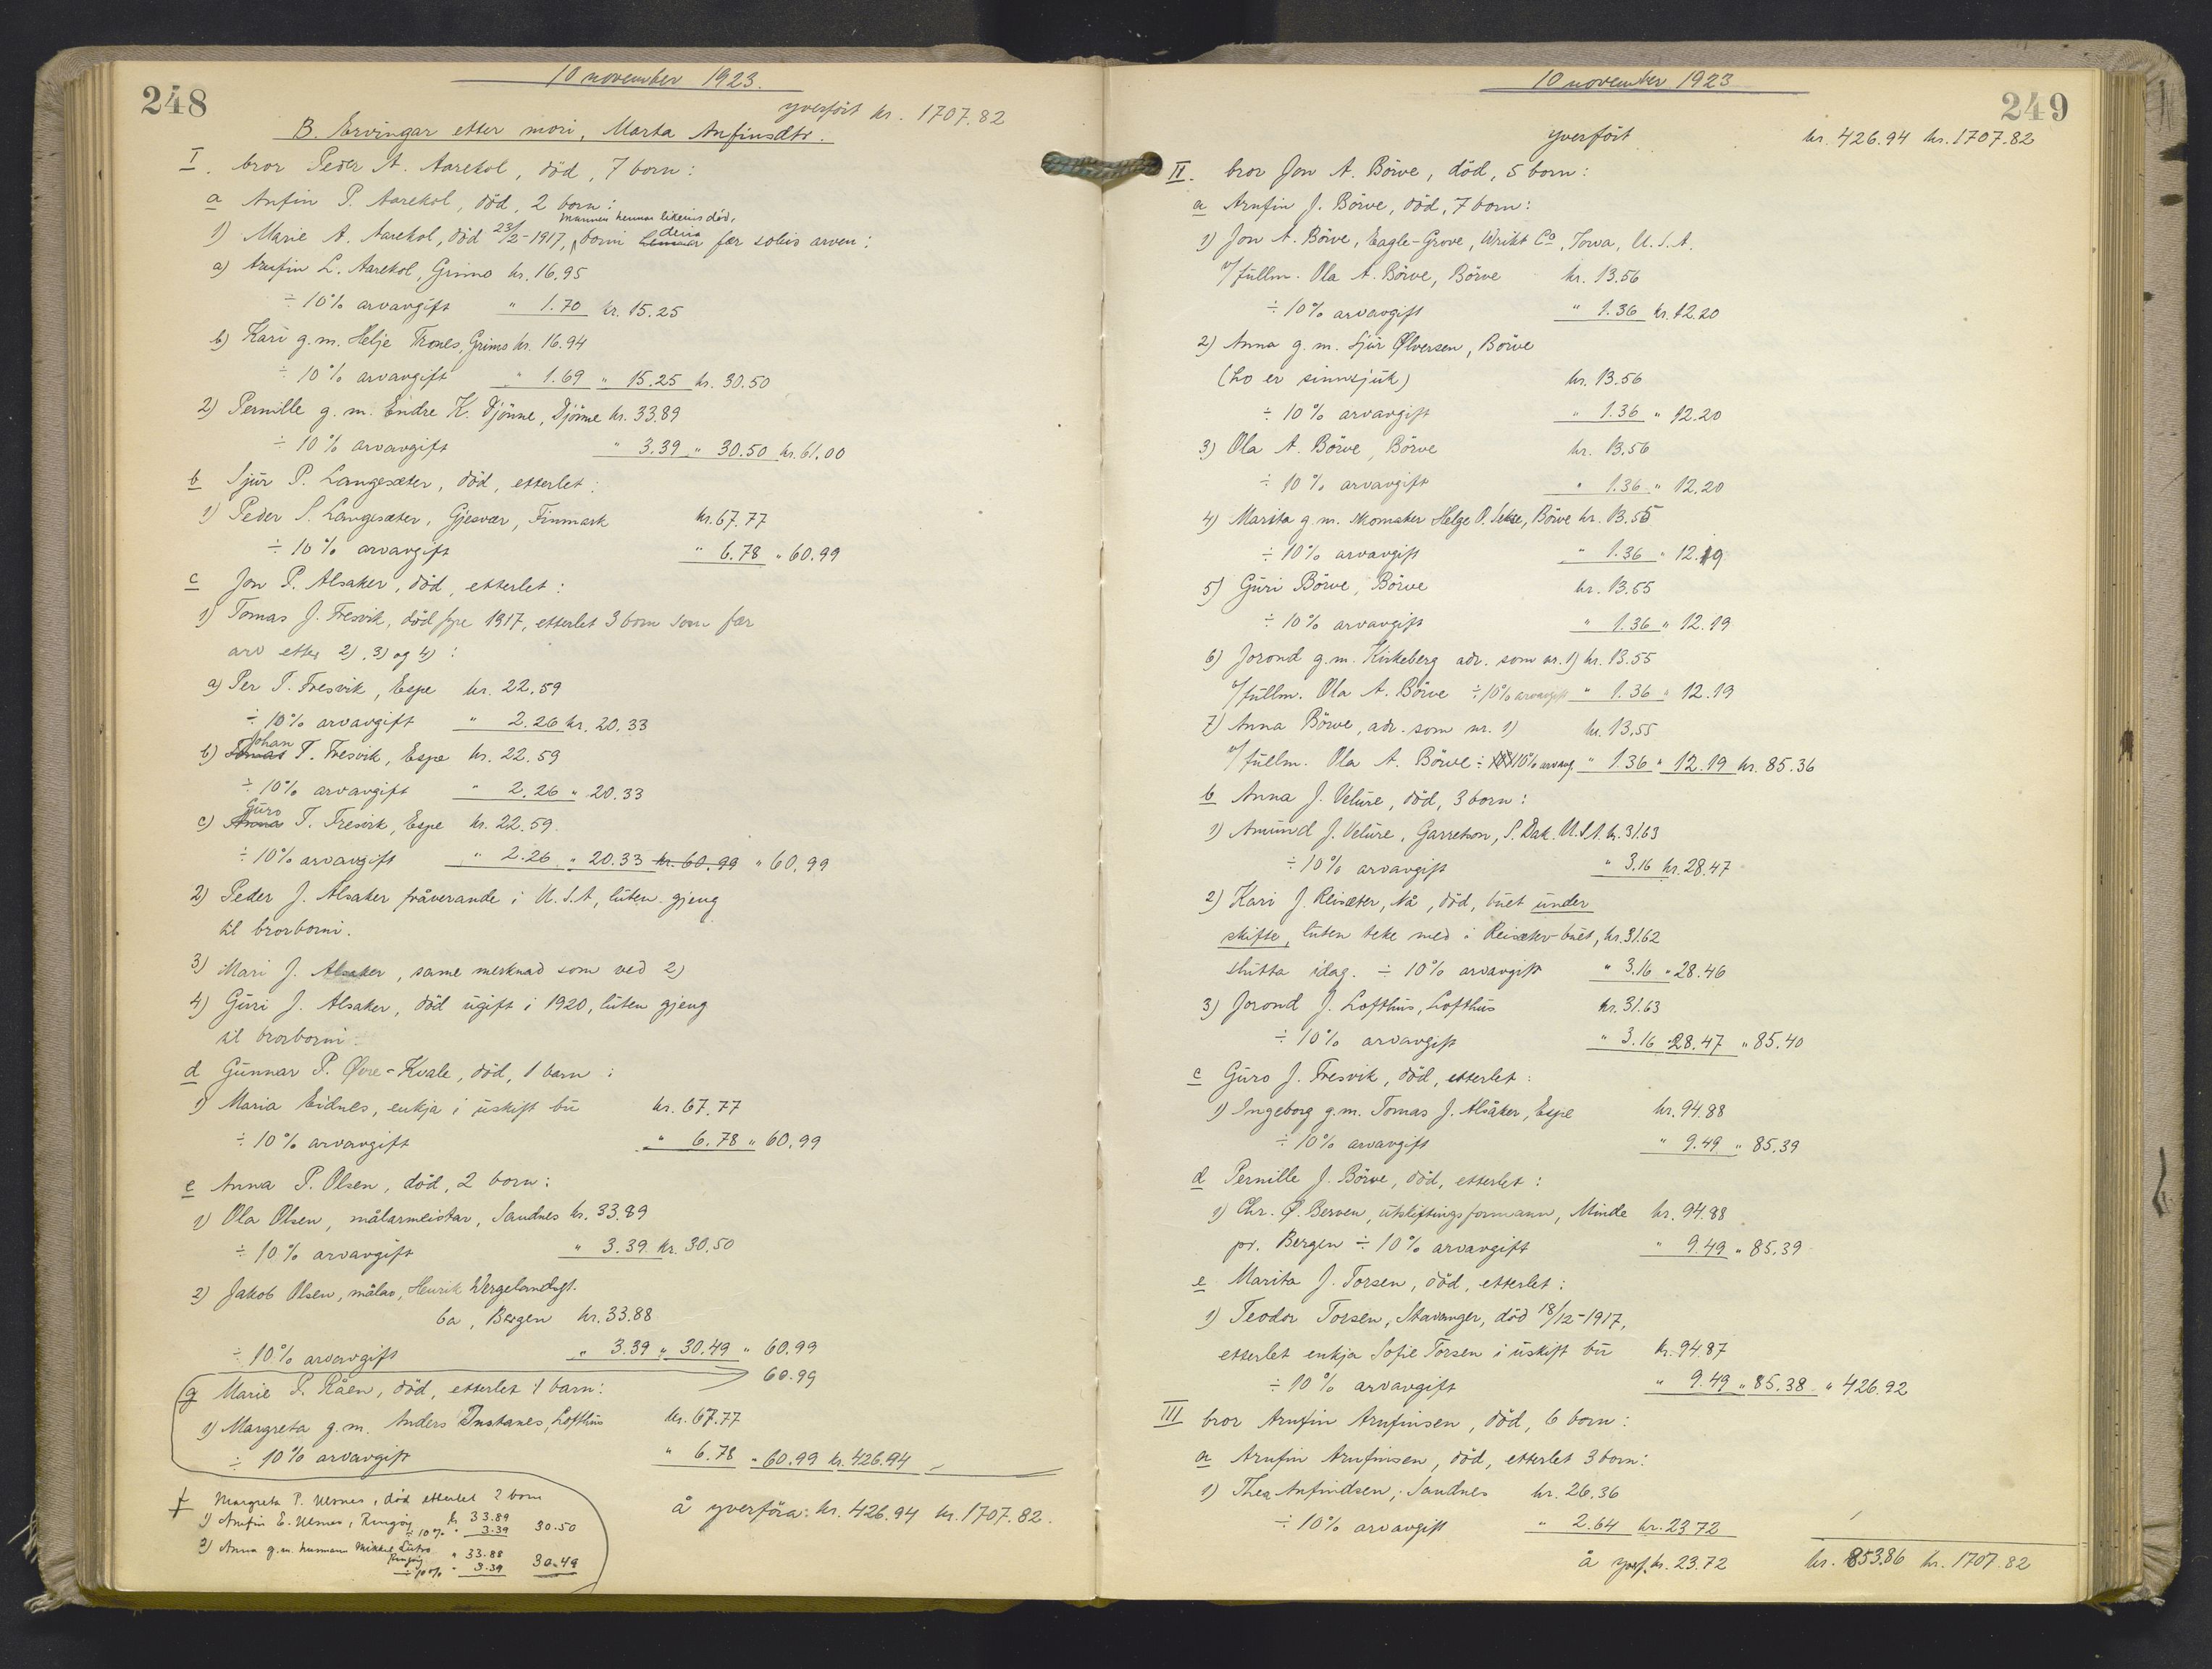 248
10 november 1923.
yverfört kr. 1707.82
B. Ervingar etter mori, Marta Anfinsdtr.
I. bror Peder A. Aarekol, död, 7 born:
a Anfin P. Aarekol, död, 2 born:
mannen hennar likeins död,
1) Marie A. Aarekol, död 23/2-1917, borni deira hennar fær soleis arven:
a) Arnfin L. Aarekol, Grimo kr. 16.95
÷ 10% arvavgift " 1.70 kr. 15.25
b) Kari g.m. Helje Trones, Grimo kr. 16.94
÷ 10% arvavgift " 1.69 " 15.25 kr. 30.50
2) Pernille g.m. Endre K. Djönne, Djönne kr. 33.89
÷ 10% arvavgift " 3.39 " 30.50 kr. 61.00
b Sjur P. Langesæter, död, etterlet:
1) Peder S. Langesæter, Gjesvær, Finmark kr. 67.77
÷ 10% arvavgift " 6.78 " 60.99
c Jon P. Alsaker, död, etterlet:
1) Tomas J. Fresvik, död fyre 1917, etterlet 3 born som fær
arv etter 2), 3) og 4):
a) Per T. Fresvik, Espe kr. 22.59
÷ 10% arvavgift " 2.26 kr. 20.33
Johan
b) Tomas T. Fresvik, Espe kr. 22.59
÷ 10% arvavgift " 2.26 " 20.33
Guro
c) Anna T. Fresvik, Espe kr. 22.59
÷ 10% arvavgift " 2.26 " 20.33 kr. 60.99 " 60.99
2) Peder J. Alsaker fråverande i U.S.A, luten gjeng
til brorborni.
3) Mari J. Alsaker, same merknad som ved 2)
4) Guri J. Alsaker, död ugift i 1920, luten gjeng
til brorborni.
d Gunnar P. Øvre-Kvale, död, 1 barn:
1) Maria Eidnes, enkja i uskift bu kr. 67.77
÷ 10% arvavgift " 6.78 " 60.99
e Anna P. Olsen, död, 2 born:
1) Ola Olsen, målarmeistar, Sandnes kr. 33.89
÷ 10% arvavgift " 3.39 kr. 30.50
2) Jakob Olsen, målar, Henrik Wergelandsgt.
6a, Bergen kr. 33.88
÷ 10% arvavgift " 3.39 " 30.49 " 60.99
60.99
g Marie P. Råen, död, etterlet 1 barn:
1) Margreta g.m. Anders Instanes, Lofthus kr. 67.77
÷ 10% arvavgift " 6.78 " 60.99 kr. 426.94
f Margreta P. Ulsnes, död etterlet 2 born
1) Arnfin E. Ulsnes, Ringöy kr 33.89
÷ 10% " 3.39 30.50
2) Anna g.m. husmann Mikkel Lutro
Ringöy " 33.88
÷ 10% " 3.39 30.49
å yverföra: kr. 426.94 kr. 1707.82.
10 november 1923
249
yverfört kr. 426.94 kr. 1707.82
II. bror Jon A. Börve, död, 5 born:
a Arnfin J. Börve, död, 7 born:
1) Jon A. Börve, Eagle-Grove, Wrikt Co, Iowa, U.S.A.
v/fullm. Ola A. Börve, Börve kr. 13.56
÷ 10% arvavgift " 1.36 kr. 12.20
2) Anna g.m. Sjur Ølversen, Börve
(ho er sinnsjuk) kr. 13.56
÷ 10% arvavgift " 1.36 " 12.20
3) Ola A. Börve, Börve kr. 13.56
÷ 10% arvavgift " 1.36 " 12.20
4) Marita g.m. skomaker Helge O. Sekse, Börve kr. 13.55
÷ 10% arvavgift " 1.36 " 12.19
5) Guri Börve, Börve kr. 13.55
÷ 10% arvavgift " 1.36 " 12.19
6) Jorond g.m. Kirkeberg adr. som nr. 1) kr. 13.55
v/fullm. Ola A. Börve ÷ 10% arvavgift " 1.36 " 12.19
7) Anna Börve, adr. som nr. 1) kr. 13.55
v/fullm. Ola A. Börve ÷ 10% arvavg. " 1.36 " 12.19 kr. 85.36
b Anna J. Velure, död, 3 born:
1) Amund J. Velure, Garretson, S. Dak. U.S.A. kr. 31.63
÷ 10% arvavgift " 3.16 kr. 28.47
2) Kari J. Reisæter, Nå, död, buet under
skifte, luten teke med i Reisæter-buet, kr. 31.62
slutta idag. ÷ 10% arvavgift " 3.16 " 28.46
3) Jorond J. Lofthus, Lofthus kr. 31.63
÷ 10% arvavgift " 3.16 " 28.47 " 85.40
c Guro J. Fresvik, död, etterlet:
1) Ingeborg g.m. Tomas J. Alsåker, Espe kr. 94.88
÷ 10% arvavgift " 9.49 " 85.39
d Pernille J. Börve, död, etterlet:
1) Chr. O. Berven, utskiftingsformann, Minde kr. 94.88
pr. Bergen ÷ 10% arvavgift " 9.49 " 85.39
e Marita J. Torsen, död, etterlet:
1) Teodor Torsen, Stavanger, död 18/12-1917,
etterlet enkja Sofie Torsen i uskift bu kr. 94.87
÷ 10% arvavgift " 9.49 " 85.38 " 426.92
III bror Arnfin Arnfinsen, död, 6 born:
a Arnfin Arnfinsen, död, etterlet 3 born:
1) Thea Anfindsen, Sandnes kr. 26.36
÷ 10% arvavgift " 2.64 kr. 23.72
å yverf. kr. 23.72 kr. 853.86 kr. 1707.82